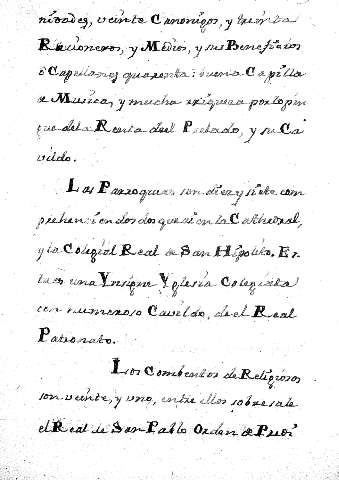 nidades, veinte Canonigos, y treinta
Racioneros, y Medios, y sus Beneficios
ô Capellanes quarenta: buena Capilla
de Musica, y mucha riqueza por lo pin
gue de la Renta del Prelado, y su Ca
vildo.
Las Parroquias son diez y siete com
prehenciendos dos que si en la Cathedral,
y la Colegial Real de San Hipolito. Es
ta es una Ynsigne Yglesia Colegiata
con numeroso Cavildo, de el Real
Patronato.
Los Combentos de Religiosos
son veinte, y uno, entre ellos sobresale
el Real de San Pablo Orden de Predi